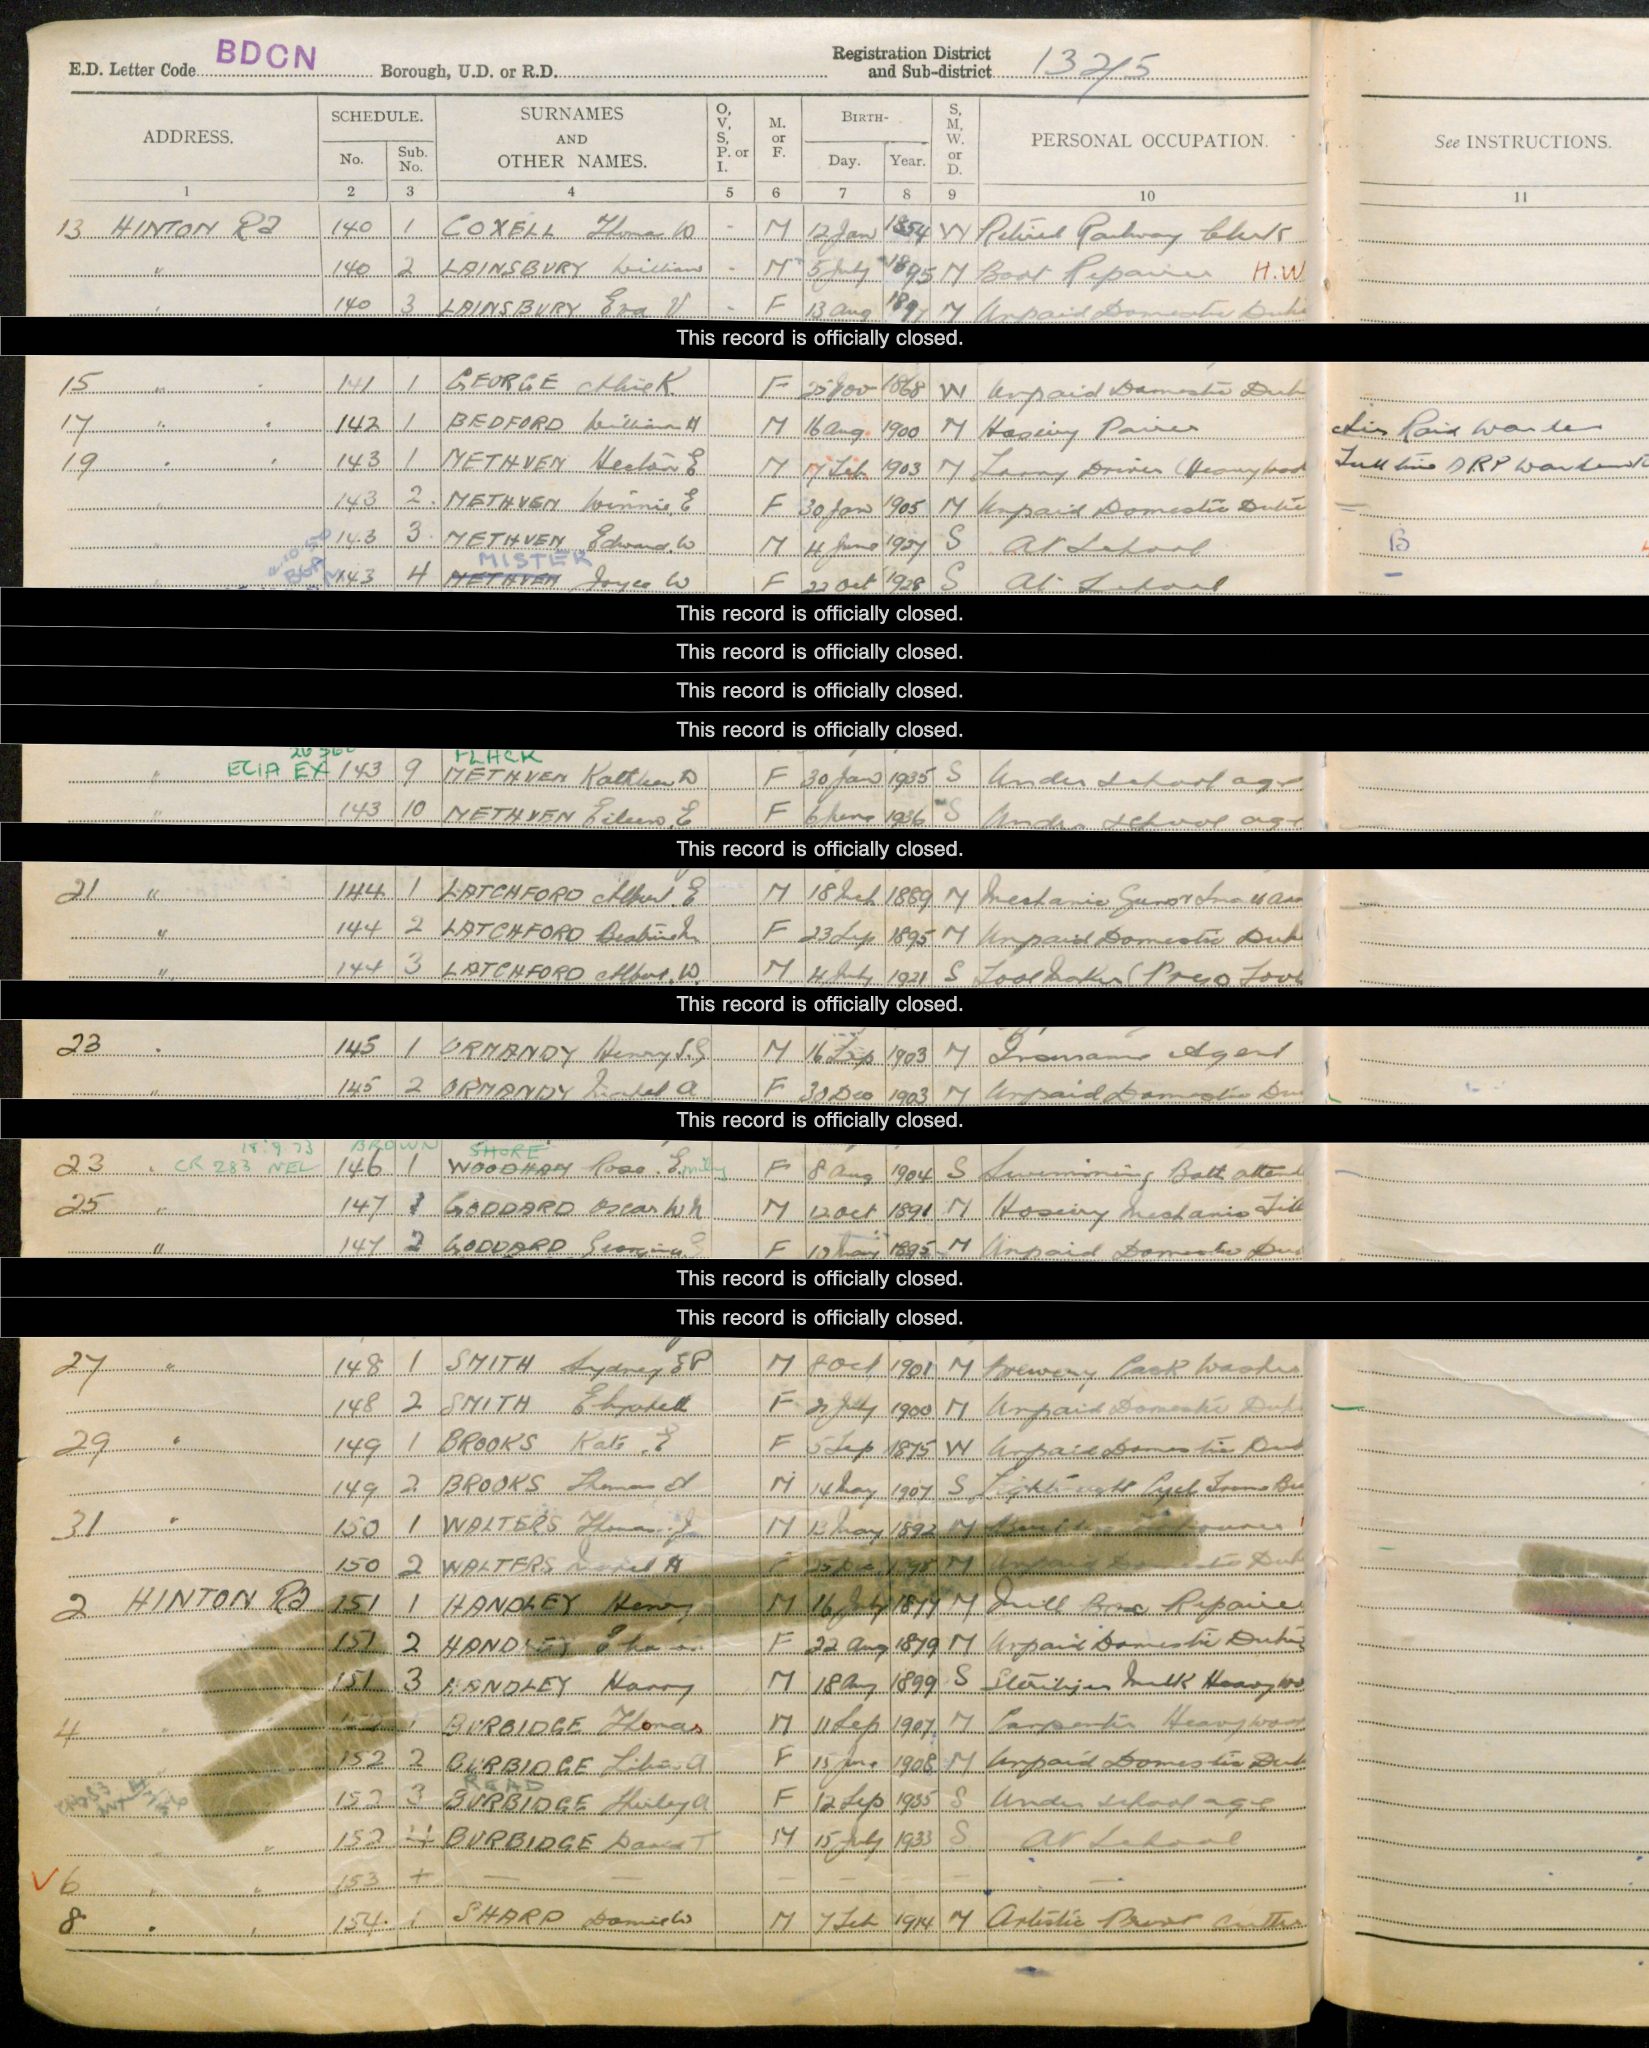 E.D. Letter Code BDCN Borough, U.D. or R.D. Registration District and Sub-district 132/5
ADDRESS. SCHEDULE. No. Sub. No. SURNAMES AND OTHER NAMES. O, V, S, P. or I. M. or F. BIRTH- Day. Year. S, M, W. or D. PERSONAL OCCUPATION. See INSTRUCTIONS.
1 2 3 4 5 6 7 8 9 10 11
13 HINTON Rd 140 1 COXELL Thomas W - M 12 Jan 1854 W Retired Railway Clerk
" 140 2 LAINSBURY William - M 5 July 1895 M Boot Repairer H.W
" 140 3 LAINSBURY Eva V - F 13 Aug 1897 M Unpaid Domestic Duties
This record is officially closed.
15 " 141 1 GEORGE Alice K F 25 Nov 1868 W Unpaid Domestic Duti
17 " " 142 1 BEDFORD William H M 16 Aug 1900 M Hosiery Pairer Air Raid Warden
19 " " 143 1 METHVEN Hector E M 17 Feb 1903 M Lorry Driver (Heavy Full time ARP Warden
" 143 2 METHVEN Winnie E F 30 Jan 1905 M Unpaid Domestic Dutie
" 143 3 METHVEN Edward W M 4 June 1927 S At School B
MISTER
143 4 METHVEN Joyce W F 22 Oct 1928 S At School
This record is officially closed.
This record is officially closed.
This record is officially closed.
This record is officially closed.
FLACK
" ECIA EX 143 9 METHVEN Kathleen D F 30 Jan 1935 S Under school age
" 143 10 METHVEN Eileen E F 6 June 1936 S Under school age
This record is officially closed.
21 " 144 1 LATCHFORD Albert E M 18 Feb 1889 M Mechanic
" 144 2 LATCHFORD F 23 Sep 1895 M Unpaid Domestic Duti
" 144 3 LATCHFORD Albert W. M 4 July 1921 S Tool Maker (Press Tool
This record is officially closed.
23 " 145 1 ORMANDY Henry M 16 Sep 1903 M Insurance Agent
" 145 2 ORMANDY Mabel A F 30 Dec 1903 M Unpaid Domestic Du
This record is officially closed.
18.9.73 BROWN SHORE
23 " CR 283 NEL 146 1 WOODHAM Rose Emily F 8 Aug 1904 S Swimming Bath attend
25 " 147 1 GODDARD Oscar W N M 12 Oct 1891 M Hosiery Mechanic
" 147 2 GODDARD Georgina F 12 May 1895 M Unpaid Domestic Du
This record is officially closed.
This record is officially closed.
27 " 148 1 SMITH Sydney E P M 8 Oct 1901 M Brewery Cask Washer
148 2 SMITH Elizabeth F 1900 M Unpaid Domestic Duti
29 " 149 1 BROOKS Kate E F 5 Sep 1875 W Unpaid Domestic Duti
149 2 BROOKS Thomas M 14 May 1907 S Cycle
31 " 150 1 WALTERS Thomas J M 13 May 1892 M Builders Labourer
150 2 WALTERS A F 25 Dec M Unpaid Domestic Duti
2 HINTON Rd 151 1 HANDLEY Henry M 16 July 1877 M Repairer
151 2 HANDLEY F 22 Aug 1879 M Unpaid Domestic Dutie
151 3 HANDLEY Harry M 18 Aug 1899 S Sterilizer Milk Heavy
4 " 1 BURBIDGE Thomas M 11 Sep 1907 M Carpenter Heavy
152 2 BURBIDGE Lilian A F 15 June 1908 M Unpaid Domestic Duti
READ
152 3 BURBIDGE Shirley A F 12 Sep 1935 S Under school age
" " 152 4 BURBIDGE David T M 15 July 1933 S At School
✓ 6 " " 153 + — — — — — —
8 " " 154 1 SHARP W M 7 Feb 1914 M Artistic Cutter